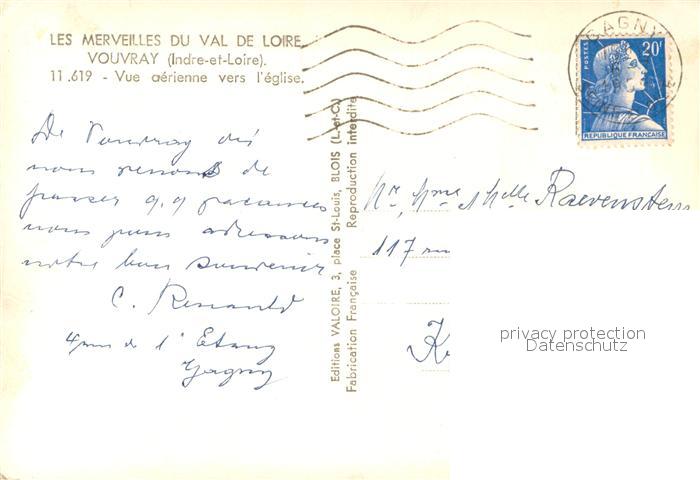 LES MERVEILLES DU VAL DE LOIRE
VOUVRAY (Indre-et-Loire).
11.619 - Vue aérienne vers l'église.
De Vouvray où
nous venons de
passer q.q vacances
nous vous adressons
notre bon souvenir
C. Renault
4 rue de l'Etang
Gagny
Editions VALOIRE, 3, place St-Louis, BLOIS (L.-et-C.)
Fabrication Française Reproduction interdite
GAGNY
POSTES
20F
REPUBLIQUE FRANÇAISE
Mr, Mme & Melle Raevenstein
117 rue
privacy protection
Datenschutz